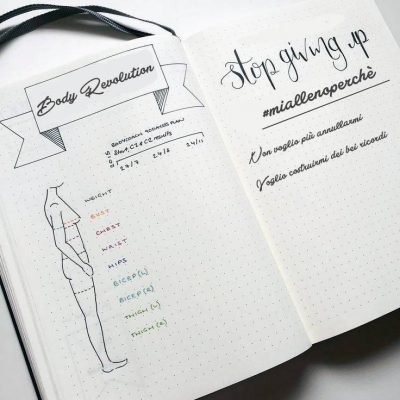 Body Revolution
BODYCOACH 90 DAYS PLAN
Start, C2 & C3 results
27/7
24/8
24/11
WEIGHT
BUST
CHEST
WAIST
HIPS
BICEP (L)
BICEP (R)
THIGH (L)
THIGH (R)
stop giving up
#miallenoperchè
Non voglio più annullarmi
Voglio costruirmi dei bei ricordi